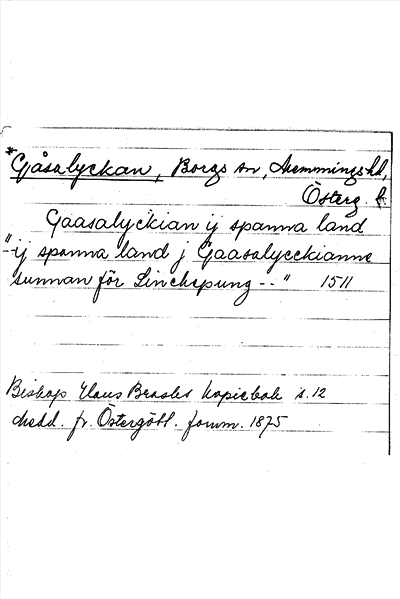 * Gåsalyckan, Borgs sn, Memmingshd,
Österg. l.
Gaasalyckian ij spanna land
"-ij spanna land j Gaasalycckianne
sunnan för Linchøpung --" 1511
Biskop Hans Brasks kopiebok s. 12
Medd. fr. Östergötl. fornm. 1875